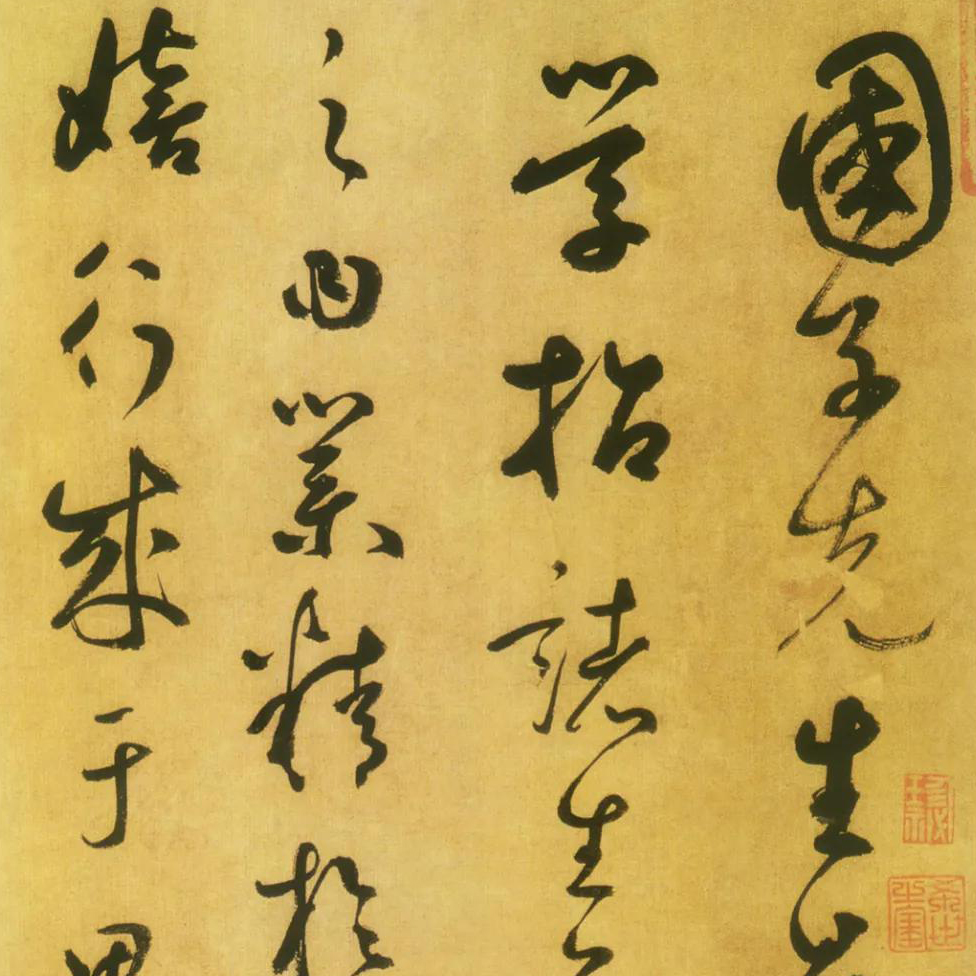 國子先生
學招諸生
之曰業精於
嬉行成于